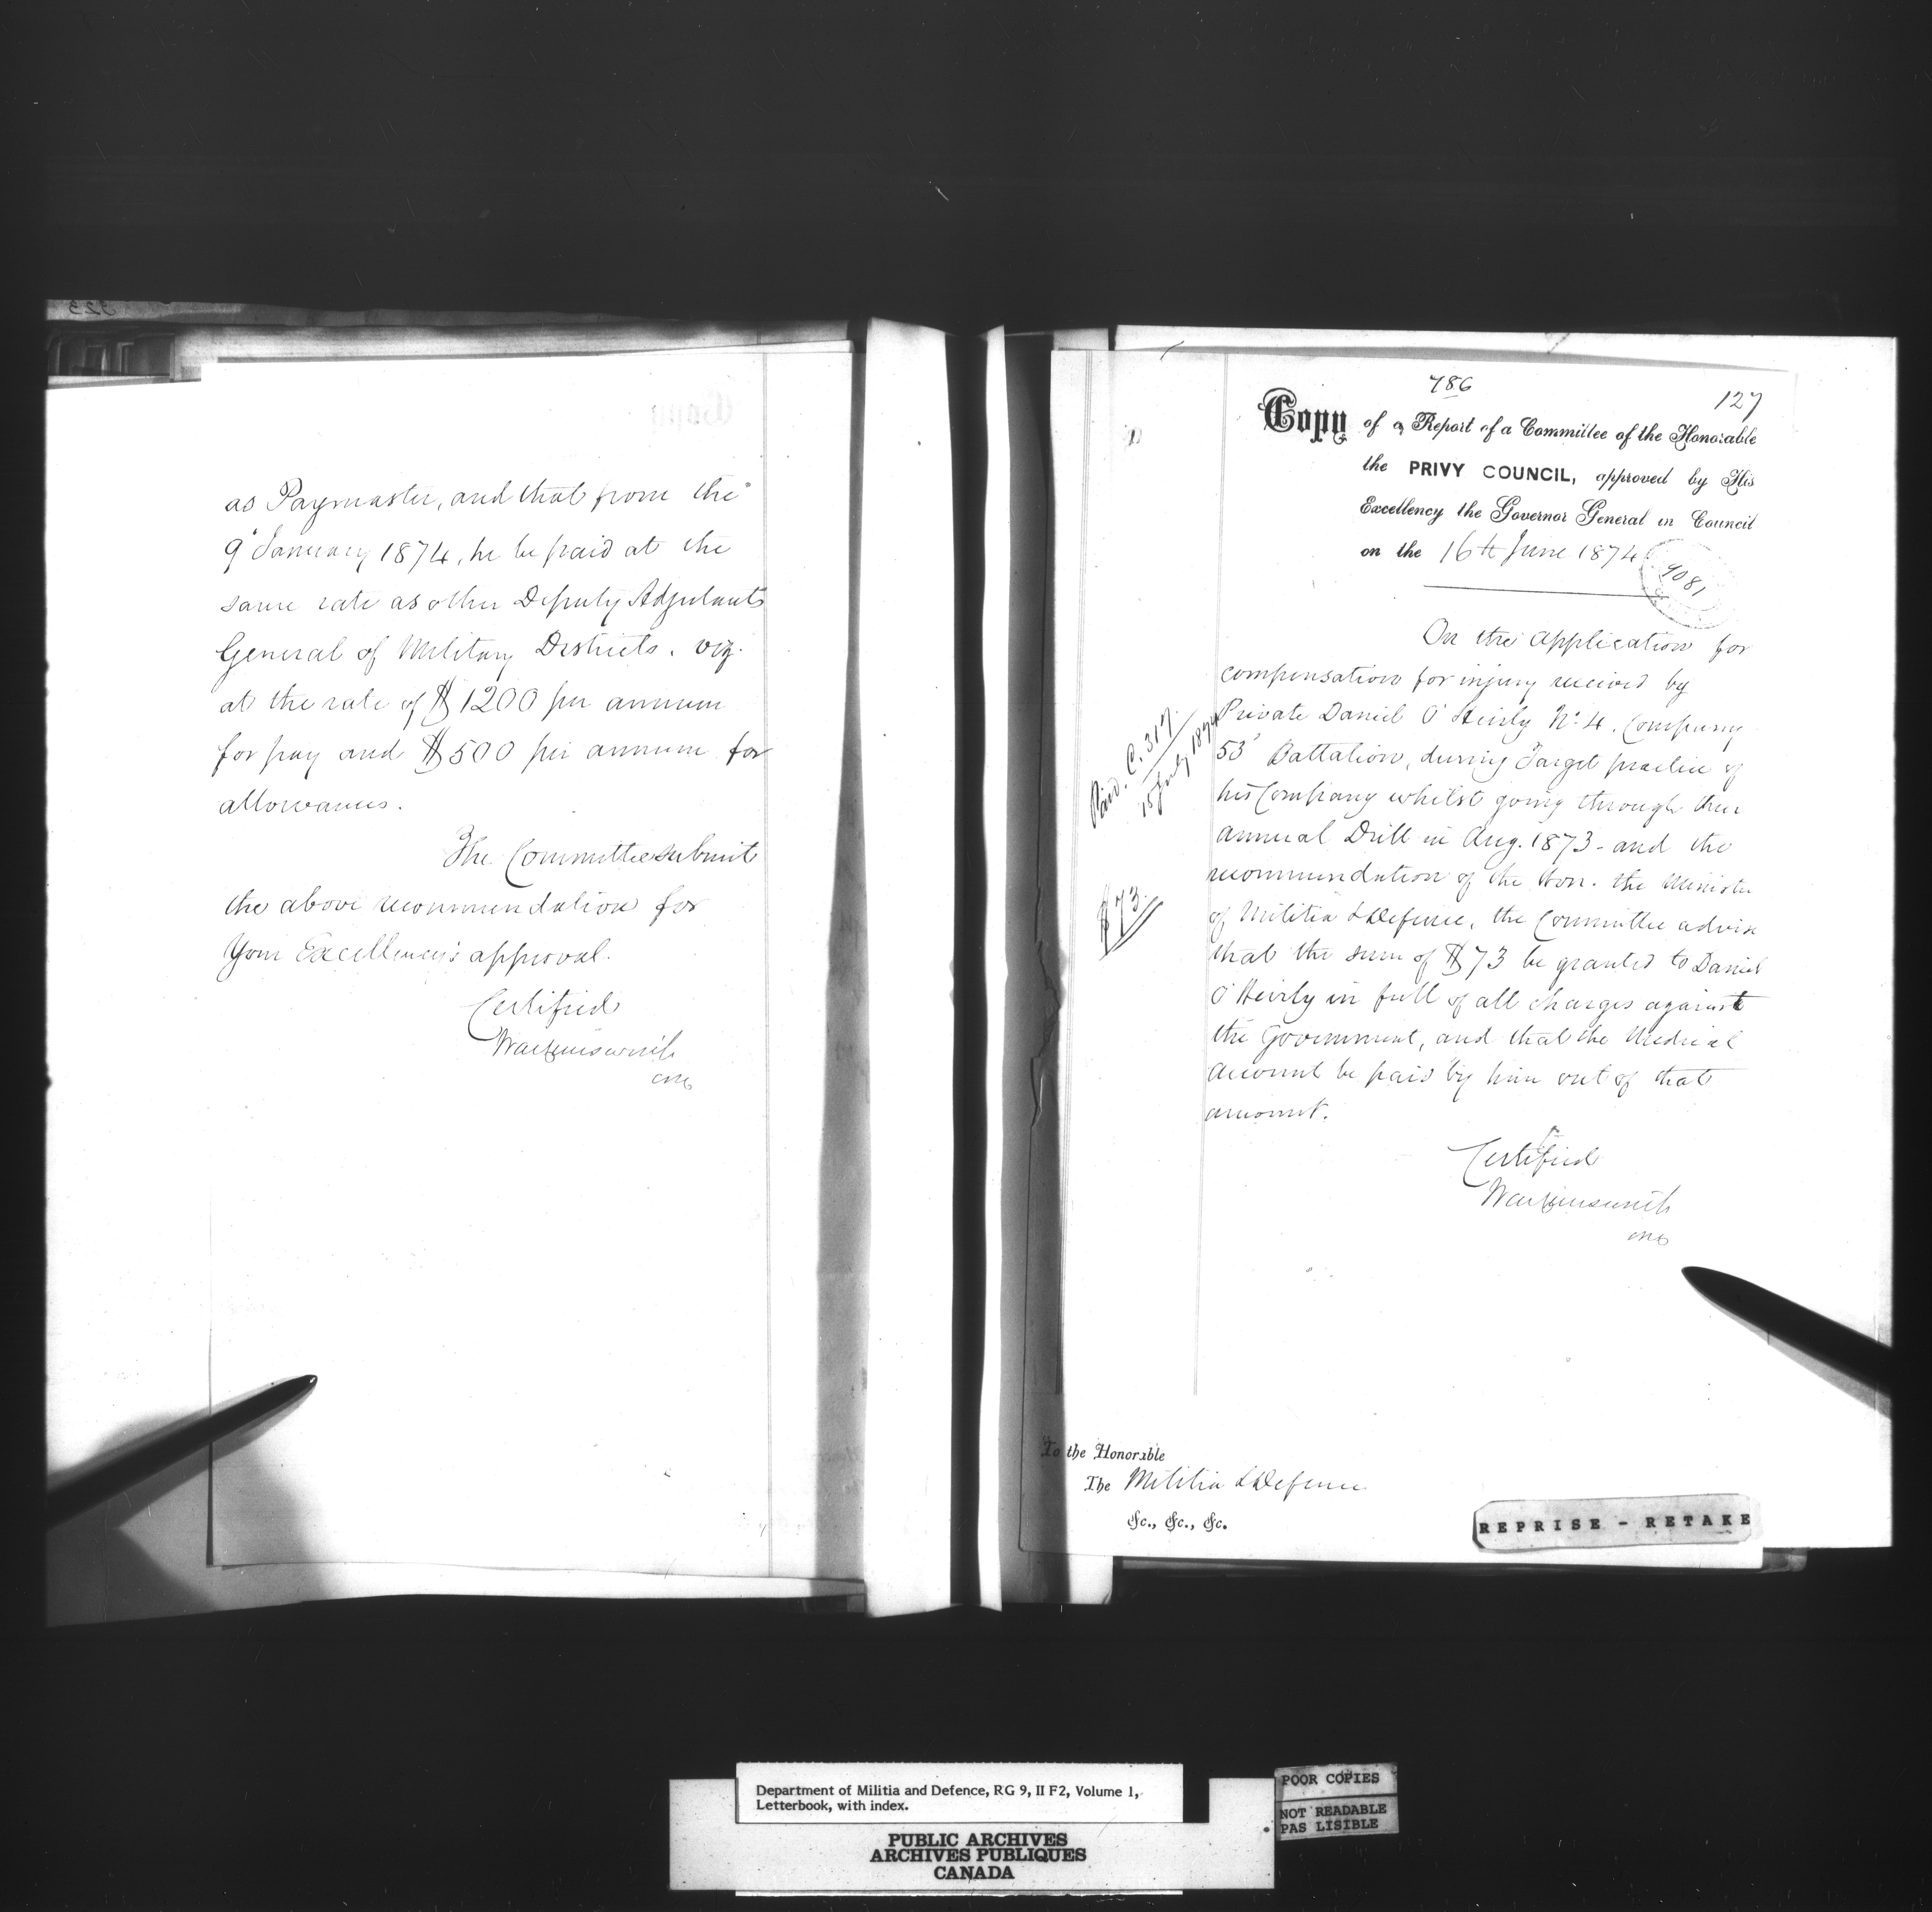 as Paymaster, and that from the
9" January 1874, he be paid at the
same rate as other Deputy Adjutants
General of Military Districts. viz.
at the rate of $1200 per annum
for pay and $500 per annum for
allowances.
The Committee submit
the above recommendation for
Your Excellency's approval.
Certified
786
127
Copy of a Report of a Committee of the Honorable
the PRIVY COUNCIL, approved by His
Excellency the Governor General in Council
on the 16th June 1874
9081
On the application for
compensation for injury received by
Private Daniel O'Heirly No. 4. Company
53' Battalion, during Target practice of
his Company whilst going through their
annual Drill in Aug. 1873 - and the
recommendation of the Hon. the Minister
of Militia & Defence, the Committee advise
that the sum of $73 be granted to Daniel
O'Heirly in full of all charges against
the Government, and that the Medical
account be paid by him out of that
amount.
Certified
C. 317.
15 July 1874
$73.
To the Honorable
The Militia & Defence
&c., &c., &c.
REPRISE - RETAKE
Department of Militia and Defence, RG 9, II F2, Volume 1,
Letterbook, with index.
PUBLIC ARCHIVES
ARCHIVES PUBLIQUES
CANADA
POOR COPIES
NOT READABLE
PAS LISIBLE